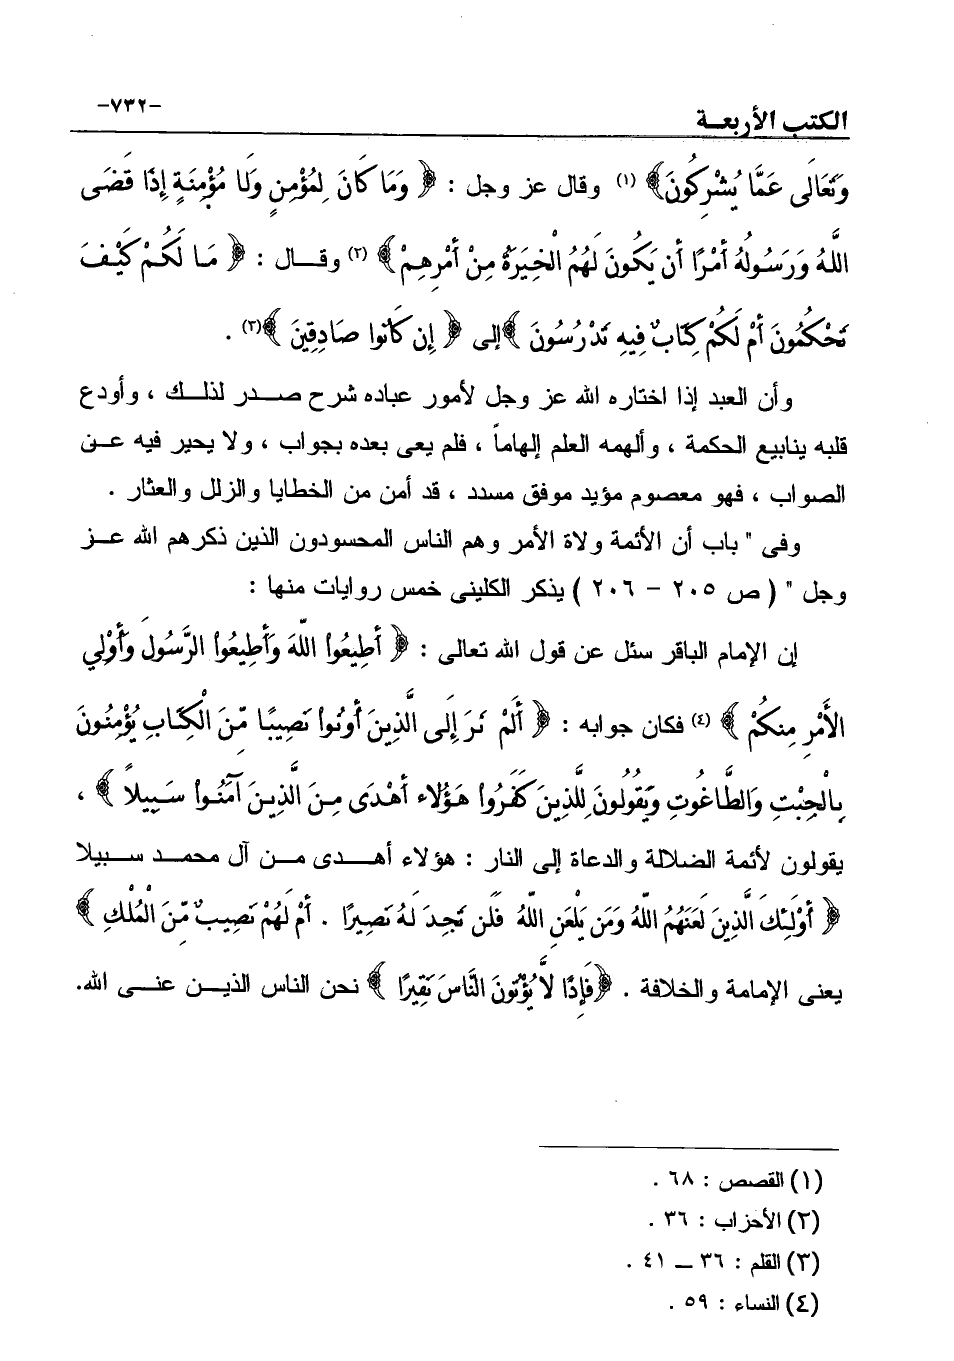 الكتب الأربعــة
-٧٣٢-
وَتَعَالَى عَمَّا يُشْرِكُونَ﴾ (١) وقال عز وجل : ﴿ وَمَا كَانَ لِمُؤْمِنٍ وَلَا مُؤْمِنَةٍ إِذَا قَضَى
اللَّهُ وَرَسُولُهُ أَمْرًا أَن يَكُونَ لَهُمُ الْخِيَرَةُ مِنْ أَمْرِهِمْ﴾ (٢) وقـــال : ﴿ مَـا لَكُـمْ كَيْـفَ
تَحْكُمُونَ أَمْ لَكُمْ كِتَابٌ فِيهِ تَدْرُسُونَ ﴾إلى ﴿ إِن كَانُوا صَادِقِينَ ﴾(٣) .
وأن العبد إذا اختاره الله عز وجل لأمور عباده شرح صـــدر لذلــك ، وأودع
قلبه ينابيع الحكمة ، وألهمه العلم إلهاماً ، فلم يعى بعده بجواب ، ولا يحير فيه عــن
الصواب ، فهو معصوم مؤيد موفق مسدد ، قد أمن من الخطايا والزلل والعثار .
وفى " باب أن الأئمة ولاة الأمر وهم الناس المحسودون الذين ذكرهم الله عــز
وجل " ( ص ٢٠٥ – ٢٠٦ ) يذكر الكلينى خمس روايات منها :
إن الإمام الباقر سئل عن قول الله تعالى : ﴿ أَطِيعُواْ اللّهَ وَأَطِيعُواْ الرَّسُولَ وَأُوْلِي
الأَمْرِ مِنكُمْ ﴾ (٤) فكان جوابه : ﴿ أَلَمْ تَرَ إِلَى الَّذِينَ أُوتُواْ نَصِيبًا مِّنَ الْكِتَابِ يُؤْمِنُونَ
بِالْجِبْتِ وَالطَّاغُوتِ وَيَقُولُونَ لِلَّذِينَ كَفَرُواْ هَؤُلاء أَهْدَى مِنَ الَّذِينَ آمَنُواْ سَبِيلاً ﴾ ،
يقولون لأئمة الضلالة والدعاة إلى النار : هؤلاء أهــدى مــن آل محمــد ســبيلا
﴿ أُوْلَئِكَ الَّذِينَ لَعَنَهُمُ اللّهُ وَمَن يَلْعَنِ اللّهُ فَلَن تَجِدَ لَهُ نَصِيرًا . أَمْ لَهُمْ نَصِيبٌ مِّنَ الْمُلْكِ ﴾
يعنى الإمامة والخلافة . ﴿فَإِذًا لاَّ يُؤْتُونَ النَّاسَ نَقِيرًا ﴾ نحن الناس الذيــن عنــى الله.
(١) القصص : ٦٨ .
(٢) الأحزاب : ٣٦ .
(٣) القلم : ٣٦ ــ ٤١ .
(٤) النساء : ٥٩ .